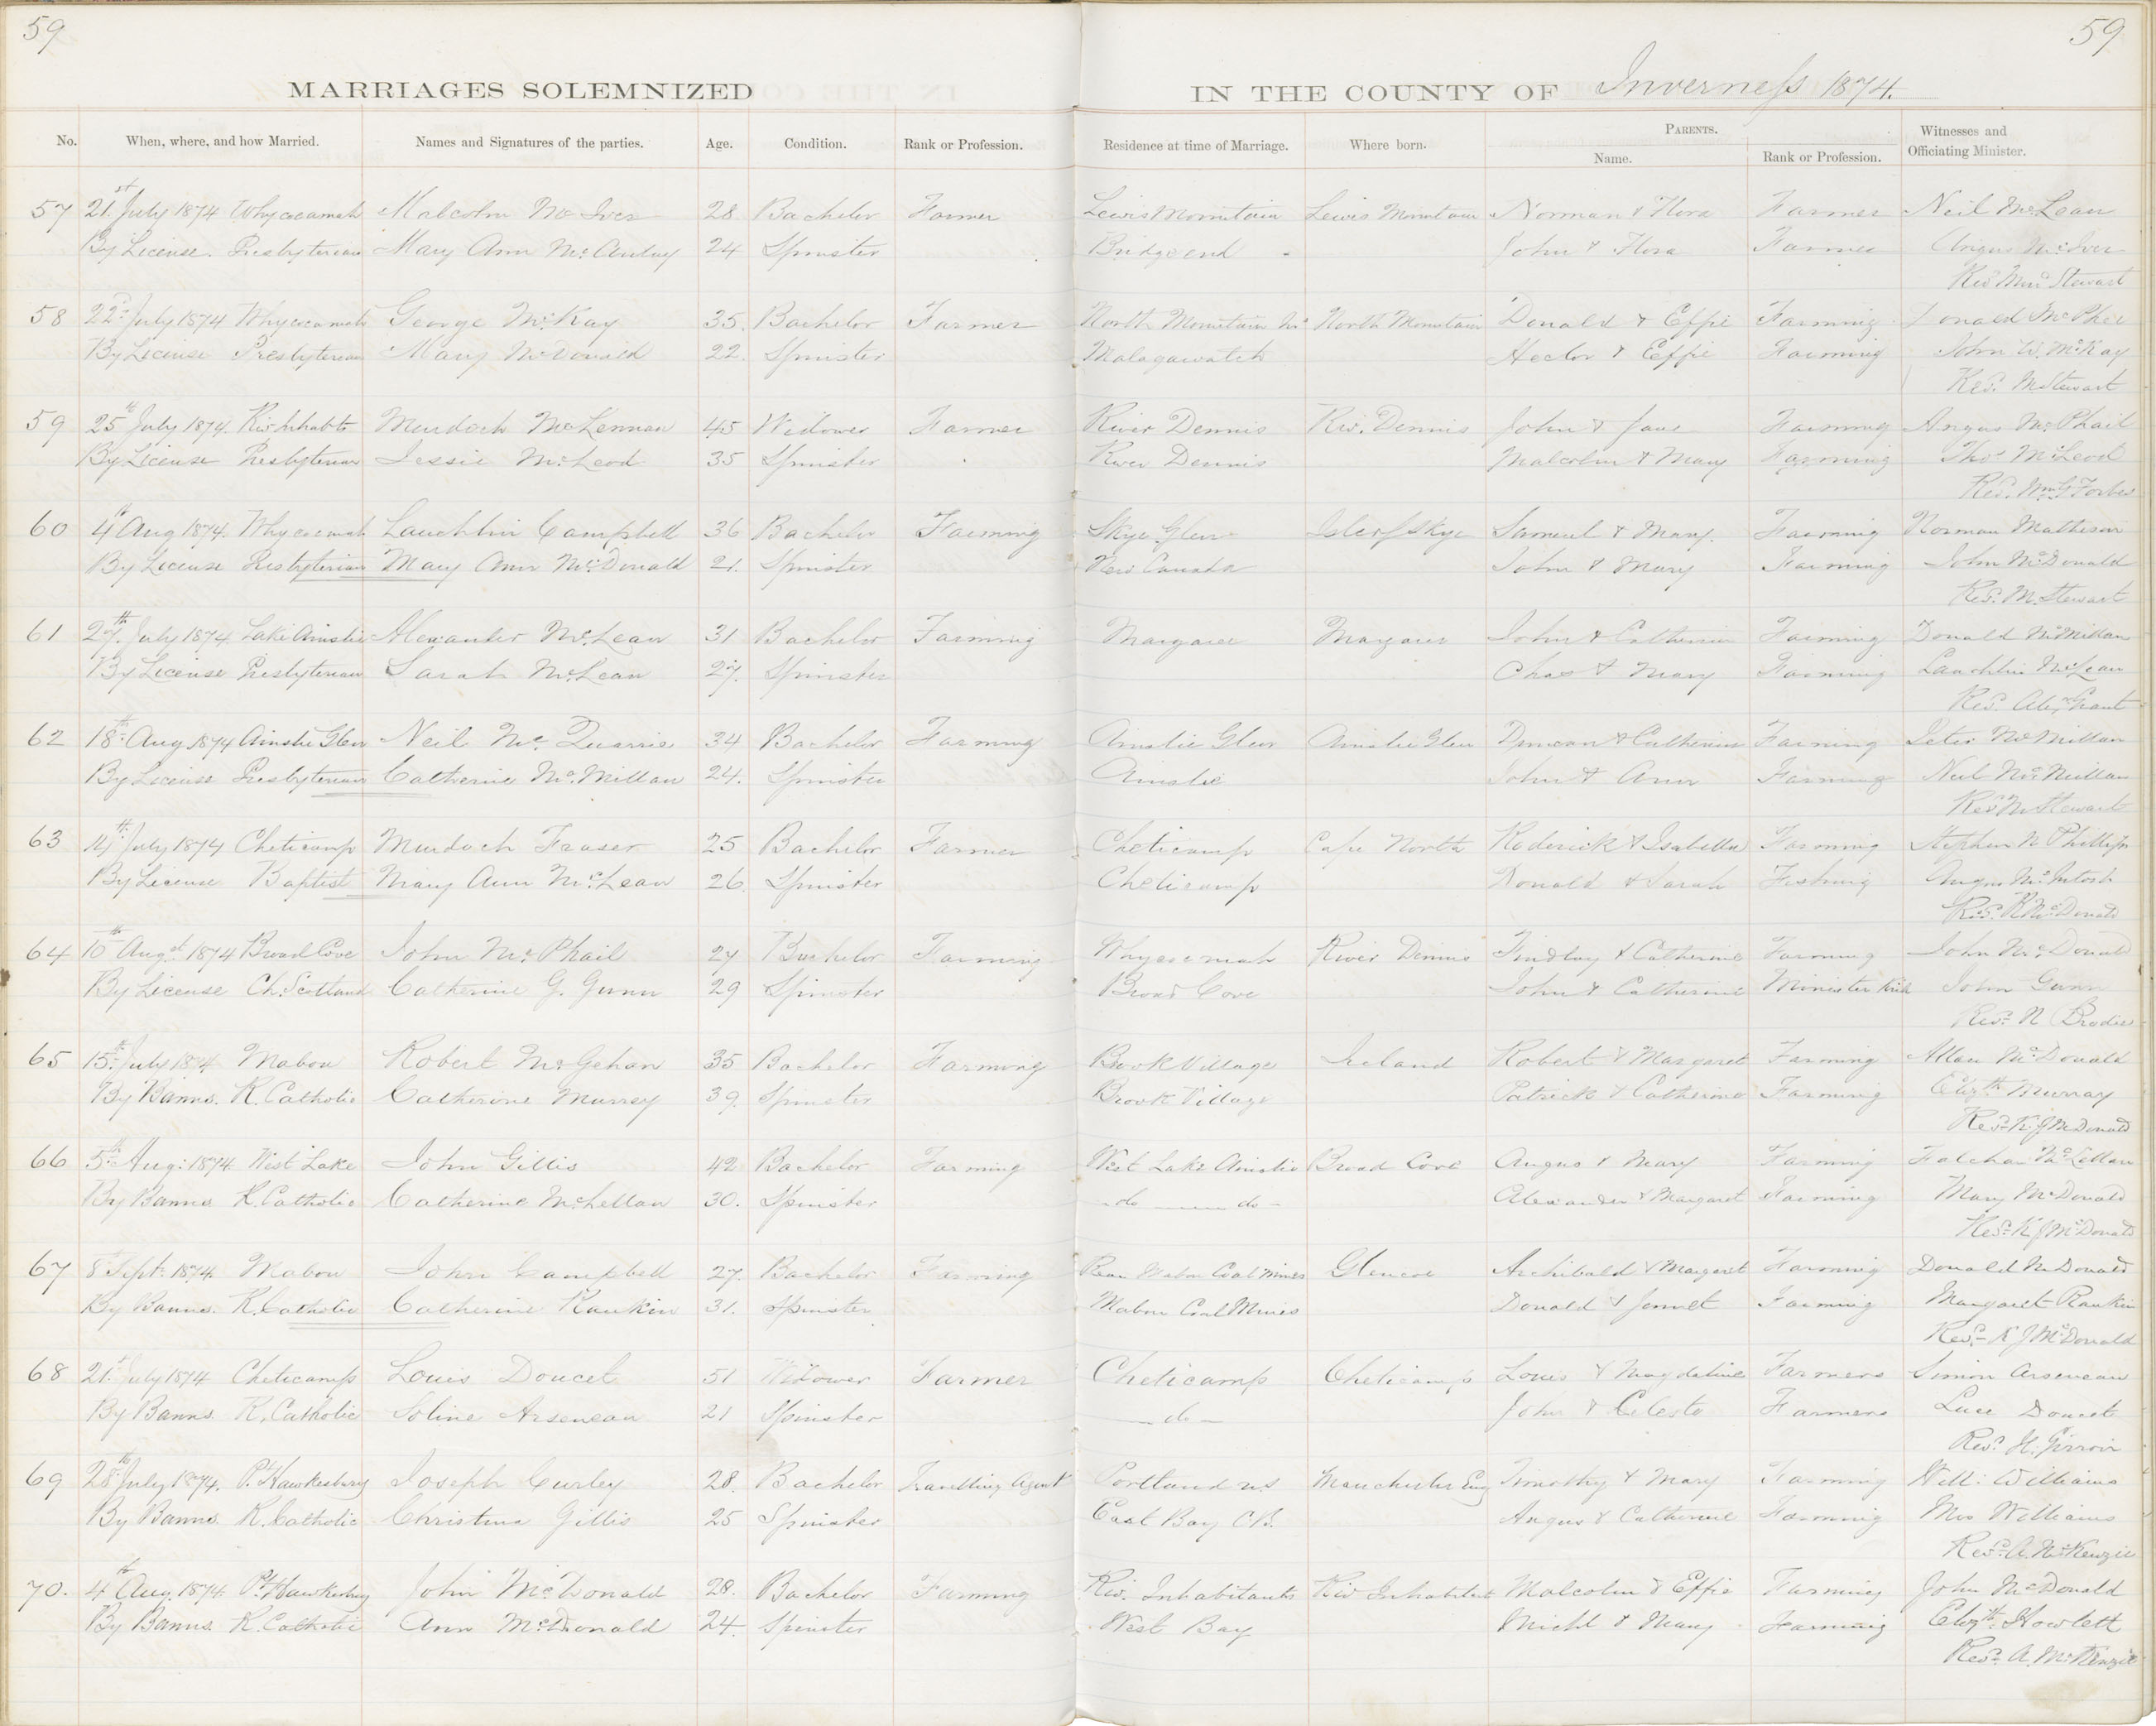 59
59
MARRIAGES SOLEMNIZED IN THE COUNTY OF Inverness 1874.
No. When, where, and how Married. Names and Signatures of the parties. Age. Condition. Rank or Profession. Residence at time of Marriage. Where born. PARENTS. Name. Rank or Profession. Witnesses and Officiating Minister.
57 21st July 1874 Whycocomah Malcolm McIver 28 Bachelor Farmer Lewis Mountain Lewis Mountain Norman & Flora Farmer Neil McLean
By License. Presbyterian Mary Ann McAulay 24 Spinster Bridgeend John & Flora Farmer Angus McIver
Revd Mur Stewart
58 22d July 1874 Whycocomah George McKay 35. Bachelor Farmer North Mountain North Mountain Donald & Effie Farming Donald McPhee
By License Presbyterian Mary McDonald 22. Spinster Malagawatch Hector & Effie Farming John W. McKay
Revd. M Stewart
59 25th July 1874. Riv Inhabts Murdoch McLennan 45 Widower Farmer River Dennis Riv. Dennis John & Jane Farming Angus McPhail
By License Presbyterian Jessie McLeod 35 Spinster River Dennis Malcolm & Mary Farming Thos McLeod
Revd. Wm G Forbes
60 4th Aug 1874. Whycocomah Lauchlin Campbell 36 Bachelor Farming Skye Glen Isle of Skye Samuel & Mary. Farming Norman Matheson
By License Presbyterian Mary Ann McDonald 21. Spinster New Canada John & Mary Farming John McDonald
Revd. M. Stewart
61 27th July 1874 Lake Ainslie Alexander McLean 31 Bachelor Farming Margaree Margaree John & Catherine Farming Donald McMillan
By License Presbyterian Sarah McLean 27. Spinster Chas & Mary Farming Lauchlin McLean
Revd. Alexr Grant
62 18th Aug 1874 Ainslie Glen Neil McQuarrie 34 Bachelor Farming Ainslie Glen Ainslie Glen Duncan & Catherine Farming Peter McMillan
By License Presbyterian Catherine McMillan 24. Spinster Ainslie John & Ann Farming Neil McMillan
Revd M Stewart
63 14th July 1874 Cheticamp Murdoch Fraser 25 Bachelor Farmer Cheticamp Cape North Roderick & Isabella Farming Stephen N Phillips
By License Baptist Mary Ann McLean 26. Spinster Cheticamp Donald & Sarah Fishing Angus McIntosh
Revd. R McDonald
64 10th Augst 1874 Broad Cove John McPhail 27 Bachelor Farming Whycocomah River Dennis Findlay & Catherine Farming John McDonald
By License Ch. Scotland Catherine G. Gunn 29 Spinster Broad Cove John & Catherine Minister Kirk John Gunn
Revd. N Brodie
65 15th July 1874 Mabou Robert McGehan 35 Bachelor Farming Brook Village Ireland Robert & Margaret Farming Allan McDonald
By Banns. R. Catholic Catherine Murrey 39. Spinster Brook Village Patrick & Catherine Farming Elizth Murray
Revd K. J McDonald
66 5th Aug: 1874 West Lake John Gillis 42 Bachelor Farming West Lake Ainslie Broad Cove Angus & Mary Farming McLellan
By Banns R. Catholic Catherine McLellan 30. Spinster -do —— do- Alexander & Margaret Farming Mary McDonald
Revd K J McDonald
67 8 Sept: 1874 Mabou John Campbell 27. Bachelor Farming Rear Mabou Coal Mines Glencoe Archibald & Margaret Farming Donald McDonald
By Banns. R. Catholic Catherine Rankin 31. Spinster Mabou Coal Mines Donald & Jennet Farming Margaret Rankin
Revd K J McDonald
68 21st July 1874 Cheticamp Louis Doucet 51 Widower Farmer Cheticamp Cheticamp Louis & Magdeline Farmers Simon Arseneau
By Banns R. Catholic Soline Arseneau 21 Spinster — do — John & Celeste Farmers Luce Doucet
Revd. H. Girroir
69 28th July 1874. Pt. Hawkesbury Joseph Curley 28. Bachelor Travelling Agent Portland us Manchester Eng Timothy & Mary Farming Will: Williams
By Banns R. Catholic Christina Gillis 25 Spinster East Bay CB. Angus & Catherine Farming Mrs Williams
Revd. A. McKenzie
70. 4th Aug. 1874 Pt Hawkesbury John McDonald 28. Bachelor Farming Riv. Inhabitants Riv Inhabitants Malcolm & Effie Farming John McDonald
By Banns R. Catholic Ann McDonald 24. Spinster West Bay Michl & Mary Farming Elizth Howlett
Revd. A. McKenzie